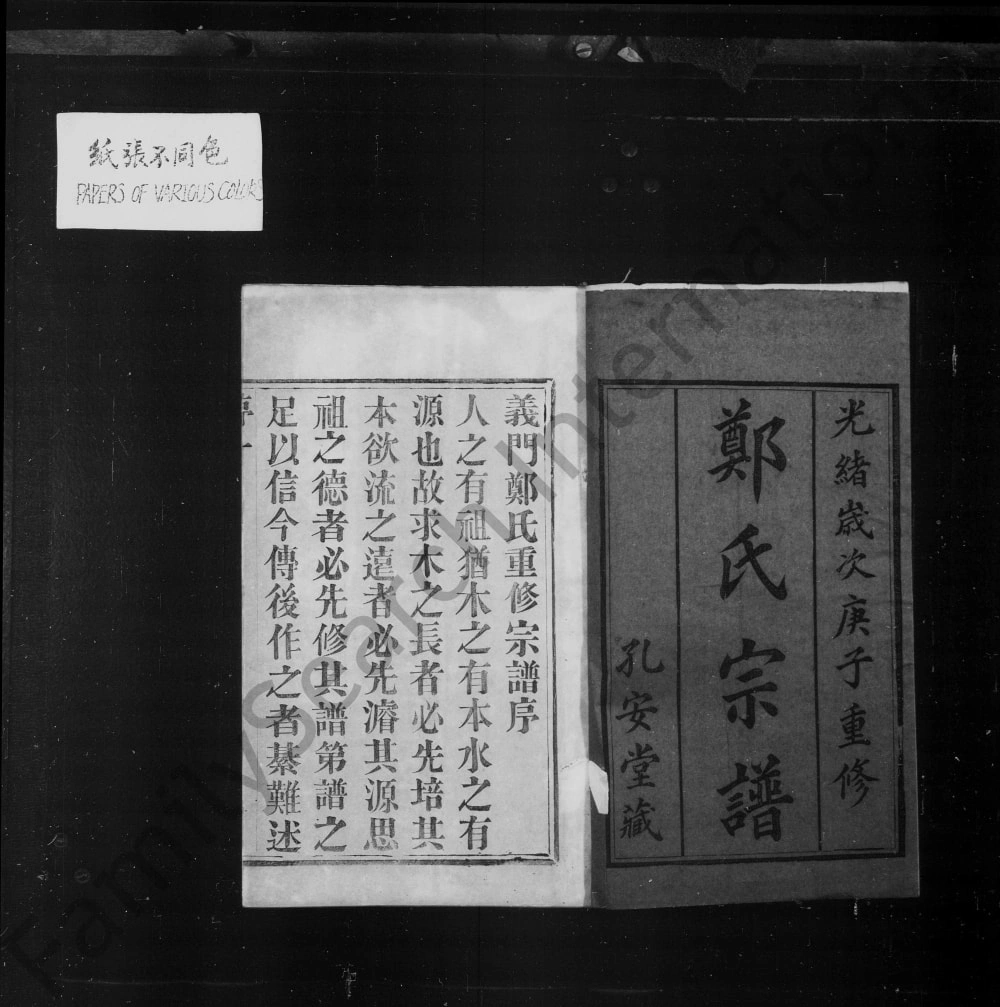 紙張不同色
PAPERS OF VARIOUS COLORS
光緒歲次庚子重修
鄭氏宗譜
孔安堂藏
義門鄭氏重修宗譜序
人之有祖猶木之有本水之有
源也故求木之長者必先培其
本欲流之遠者必先濬其源思
祖之德者必先修其譜第譜之
足以信今傳後作之者綦難述
序一
FamilySearch International